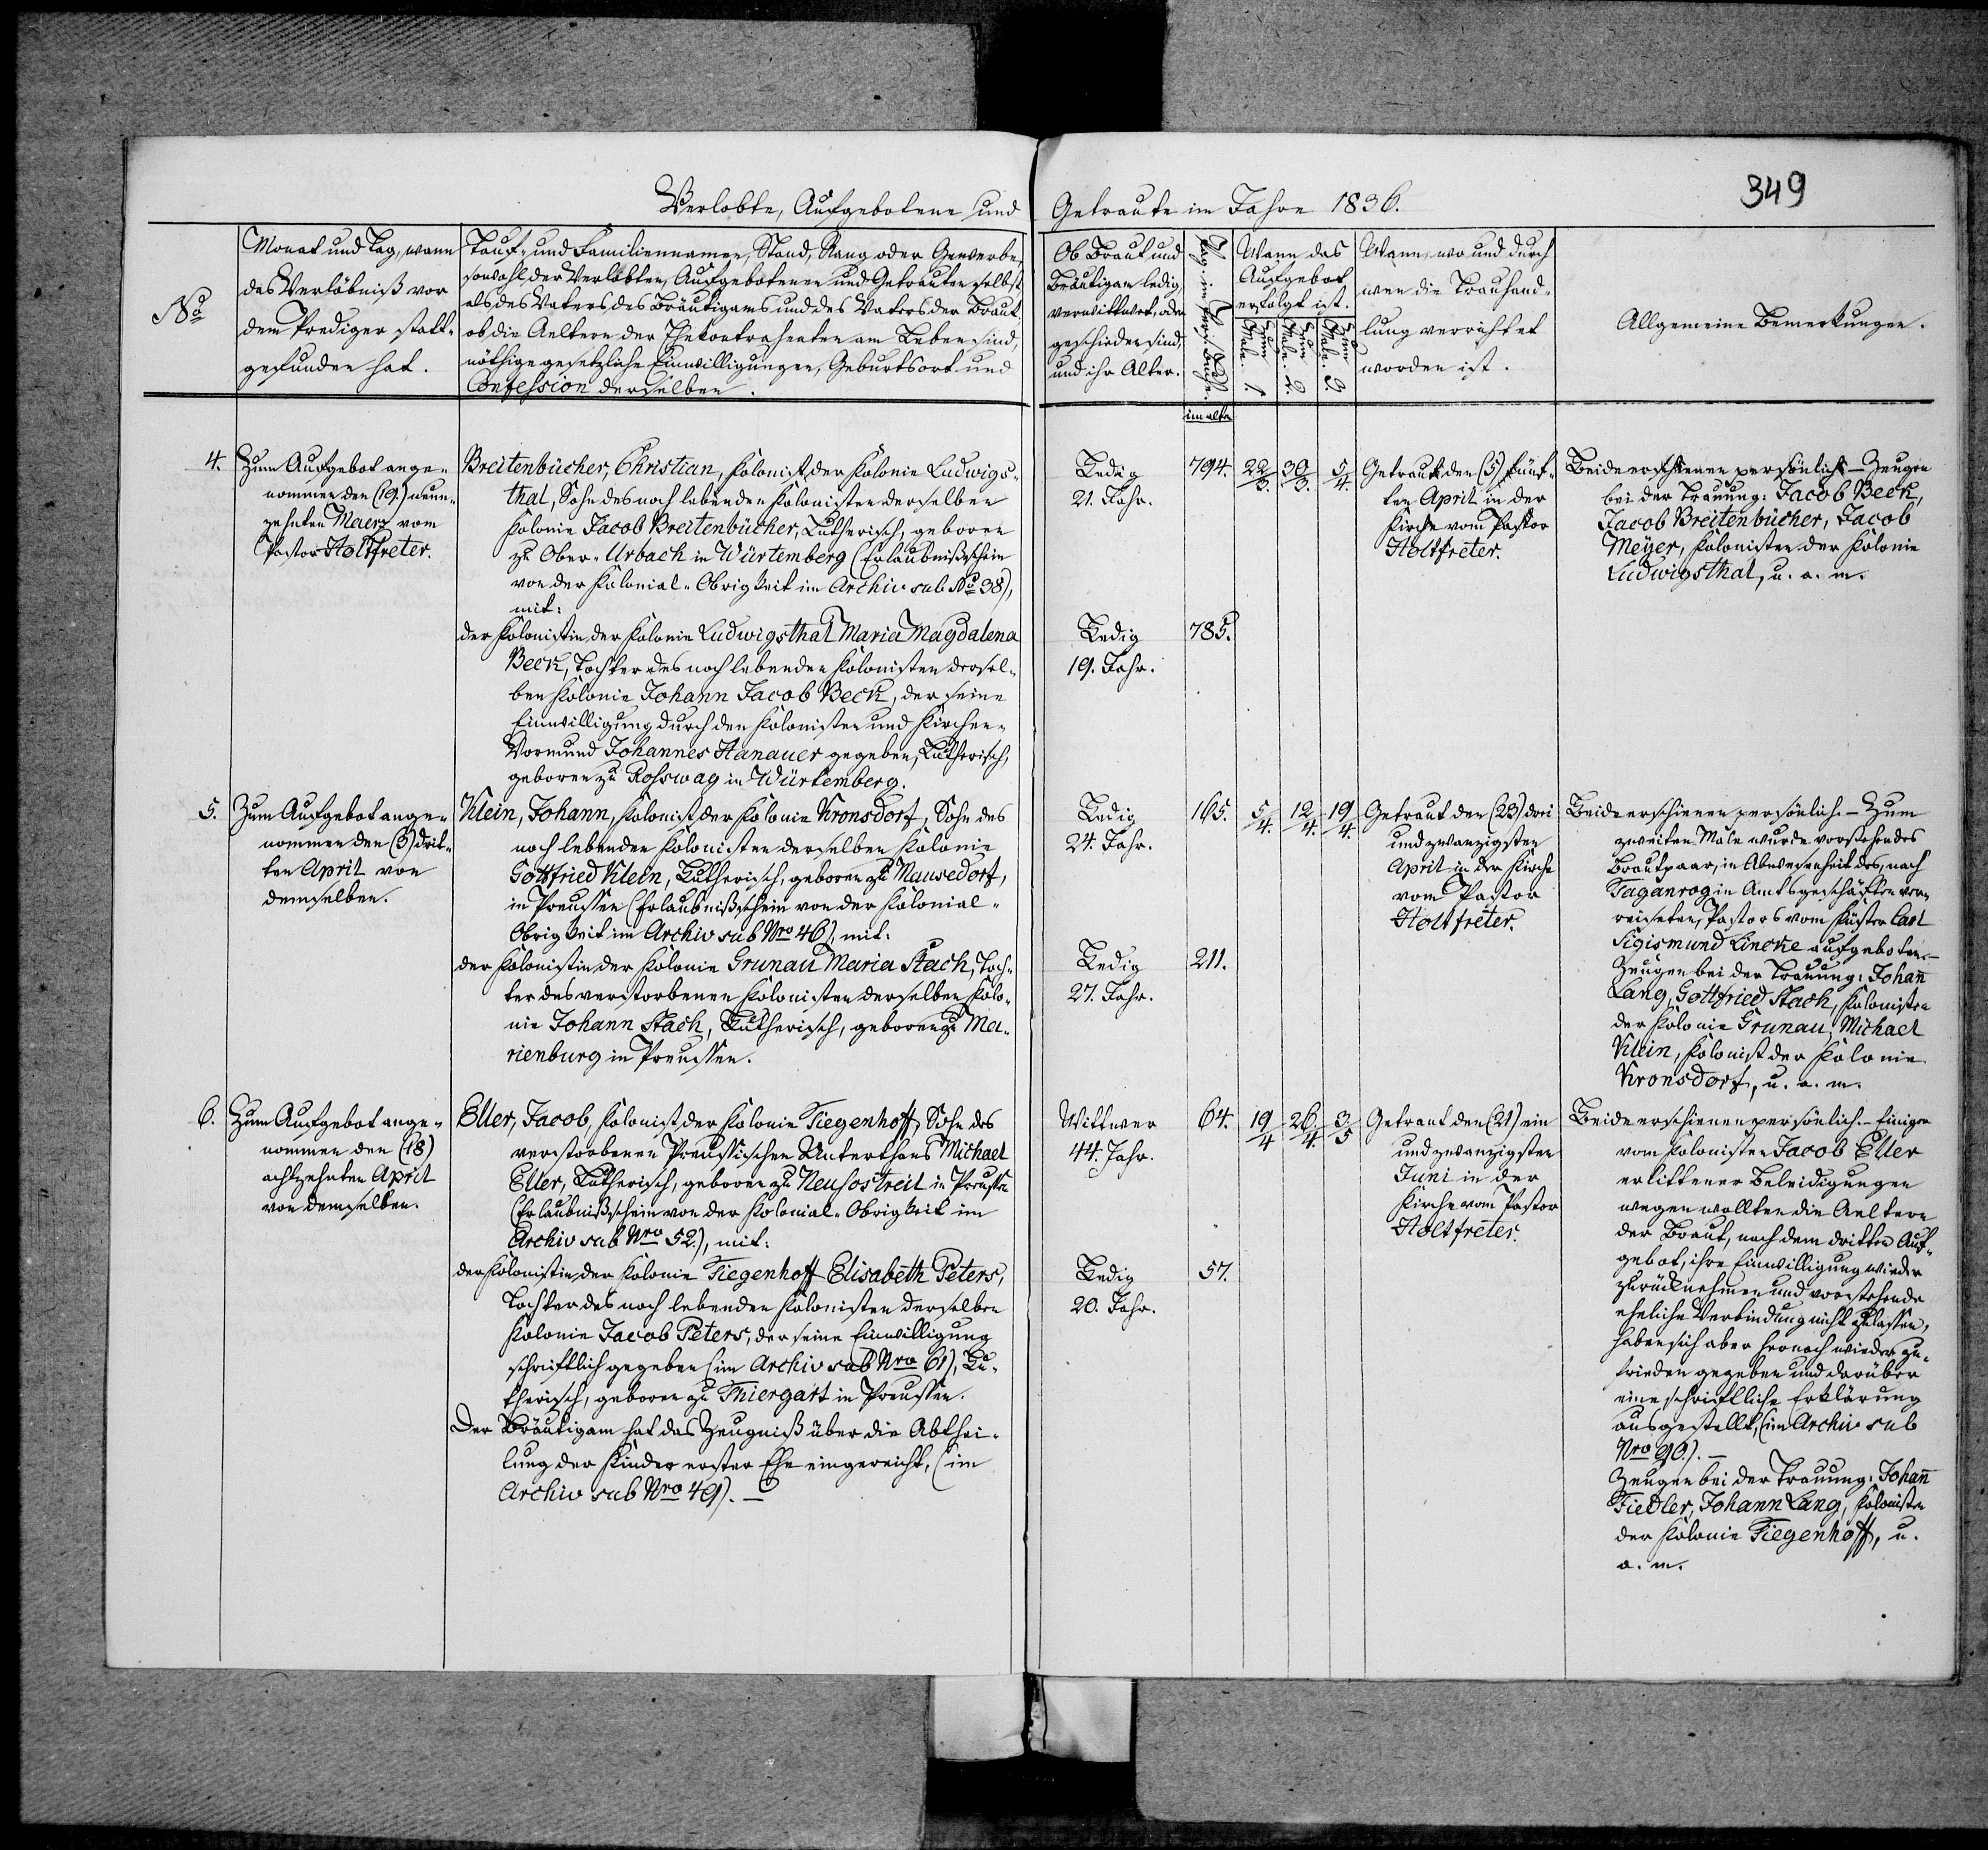 Verlobte, Aufgebotene und Getraute im Jahre 1836.
349
No
Monat und Tag, wann
das Verlöbniß vor
dem Prediger statt-
gefunden hat.
Tauf- und Familiennamen, Stand, Rang oder Gewerbe,
sowohl der Verlobten, Aufgebotenen und Getrauten selbst
als des Vaters des Bräutigams und des Vaters der Braut,
ob die Aeltern der Ehekontrahenten am Leben sind,
nöthige gesetzliche Einwilligungen, Geburtsort und
Confession derselben.
Ob Braut und
Bräutigam ledig,
verwittwet, oder
geschieden sind,
und ihr Alter.
Pag. im Pers. Buche.
im alten
Wann das
Aufgebot
erfolgt ist.
Zum 1. Male.
Zum 2. Male.
Zum 3. Male.
Wann, wo und durch
wen die Trauhand-
lung verrichtet
worden ist.
Allgemeine Bemerkungen.
4.
Zum Aufgebot ange-
nommen den (19.) neun-
zehnten Maerz vom
Pastor Holtfreter.
Breitenbücher, Christian, Kolonist der Kolonie Ludwigs-
thal, Sohn des noch lebenden Kolonisten derselben
Kolonie Jacob Breitenbücher, Lutherisch, geboren
zu Ober-Urbach in Würtemberg (Erlaubnißschein
von der Kolonial-Obrigkeit im Archiv sub No 38),
mit:
der Kolonistin der Kolonie Ludwigsthal Maria Magdalena
Beck, Tochter des noch lebenden Kolonisten dersel-
ben Kolonie Johann Jacob Beck, der seine
Einwilligung durch den Kolonisten und Kirchen-
Vormund Johannes Hanauer gegeben, Lutherisch,
geboren zu Rosswag in Würtemberg.
Ledig
21. Jahr.
794.
22/3.
30/3.
5/4.
Ledig
19. Jahr.
785.
Getraut den (5) fünf-
ten April in der
Kirche vom Pastor
Holtfreter.
Beide erschienen persönlich. – Zeugen
bei der Trauung: Jacob Beck,
Jacob Breitenbücher, Jacob
Meÿer, Kolonisten der Kolonie
Ludwigsthal, u. a. m.
5.
Zum Aufgebot ange-
nommen den (3) drit-
ten April von
demselben.
Klein, Johann, Kolonist der Kolonie Kronsdorf, Sohn des
noch lebenden Kolonisten derselben Kolonie
Gottfried Klein, Lutherisch, geboren zu Mausedorf,
in Preussen (Erlaubnißschein von der Kolonial-
Obrigkeit im Archiv sub Nro 46), mit:
der Kolonistin der Kolonie Grunau Maria Stach, Toch-
ter des verstorbenen Kolonisten derselben Kolo-
nie Johann Stach, Lutherisch, geboren zu Ma-
rienburg in Preussen.
Ledig
24. Jahr.
165.
5/4.
12/4.
19/4
Ledig
27. Jahr.
211.
Getraut den (23) drei
und zwanzigsten
April in der Kirche
vom Pastor
Holtfreter.
Beide erschienen persönlich. – Zum
zweiten Male wurde vorstehendes
Brautpaar, in Abwesenheit des, nach
Taganrog in Amtsgeschäften ver-
reiseten, Pastors vom Küster Carl
Sigismund Lincke aufgeboten. –
Zeugen bei der Trauung: Johann
Lang, Gottfried Stach, Kolonisten
der Kolonie Grunau, Michael
Klein, Kolonist der Kolonie
Kronsdorf, u. a. m.
6.
Zum Aufgebot ange-
nommen den (18)
achtzehnten April
von demselben.
Eller, Jacob, Kolonist der Kolonie Tiegenhoff, Sohn des
verstorbenen Preussischen Unterthans Michael
Eller, Lutherisch, geboren zu in Preussen
(Erlaubnißschein von der Kolonial-Obrigkeit im
Archiv sub Nro 52.), mit:
der Kolonistin der Kolonie Tiegenhoff Elisabeth Peters,
Tochter des noch lebenden Kolonisten derselben
Kolonie Jacob Peters, der seine Einwilligung
schriftlich gegeben (im Archiv sub Nro 61), Lu-
therisch, geboren zu Thiergart in Preussen.
Der Bräutigam hat das Zeugniß über die Abthei-
lung der Kinder erster Ehe eingereicht, (im
Archiv sub Nro 49). –
Wittwer
44. Jahr.
64.
19/4
26/4.
3/5
Ledig
20. Jahr.
57.
Getraut den (21) ein
und zwanzigsten
Juni in der
Kirche vom Pastor
Holtfreter.
Beide erschienen persönlich. – Einiger
vom Kolonisten Jacob Eller
erlittener Beleidigungen
wegen wollten die Aeltern
der Braut, nach dem dritten Auf-
gebot, ihre Einwilligung wieder
zurücknehmen und vorstehende
eheliche Verbindung nicht zulassen,
haben sich aber hernach wieder zu-
frieden gegeben und darüber
eine schriftliche Erklärung
ausgestellt, (im Archiv sub
Nro 90.). –
Zeugen bei der Trauung: Johann
Fiedler, Johann Lang, Kolonisten
der Kolonie Tiegenhoff, u.
a. m.